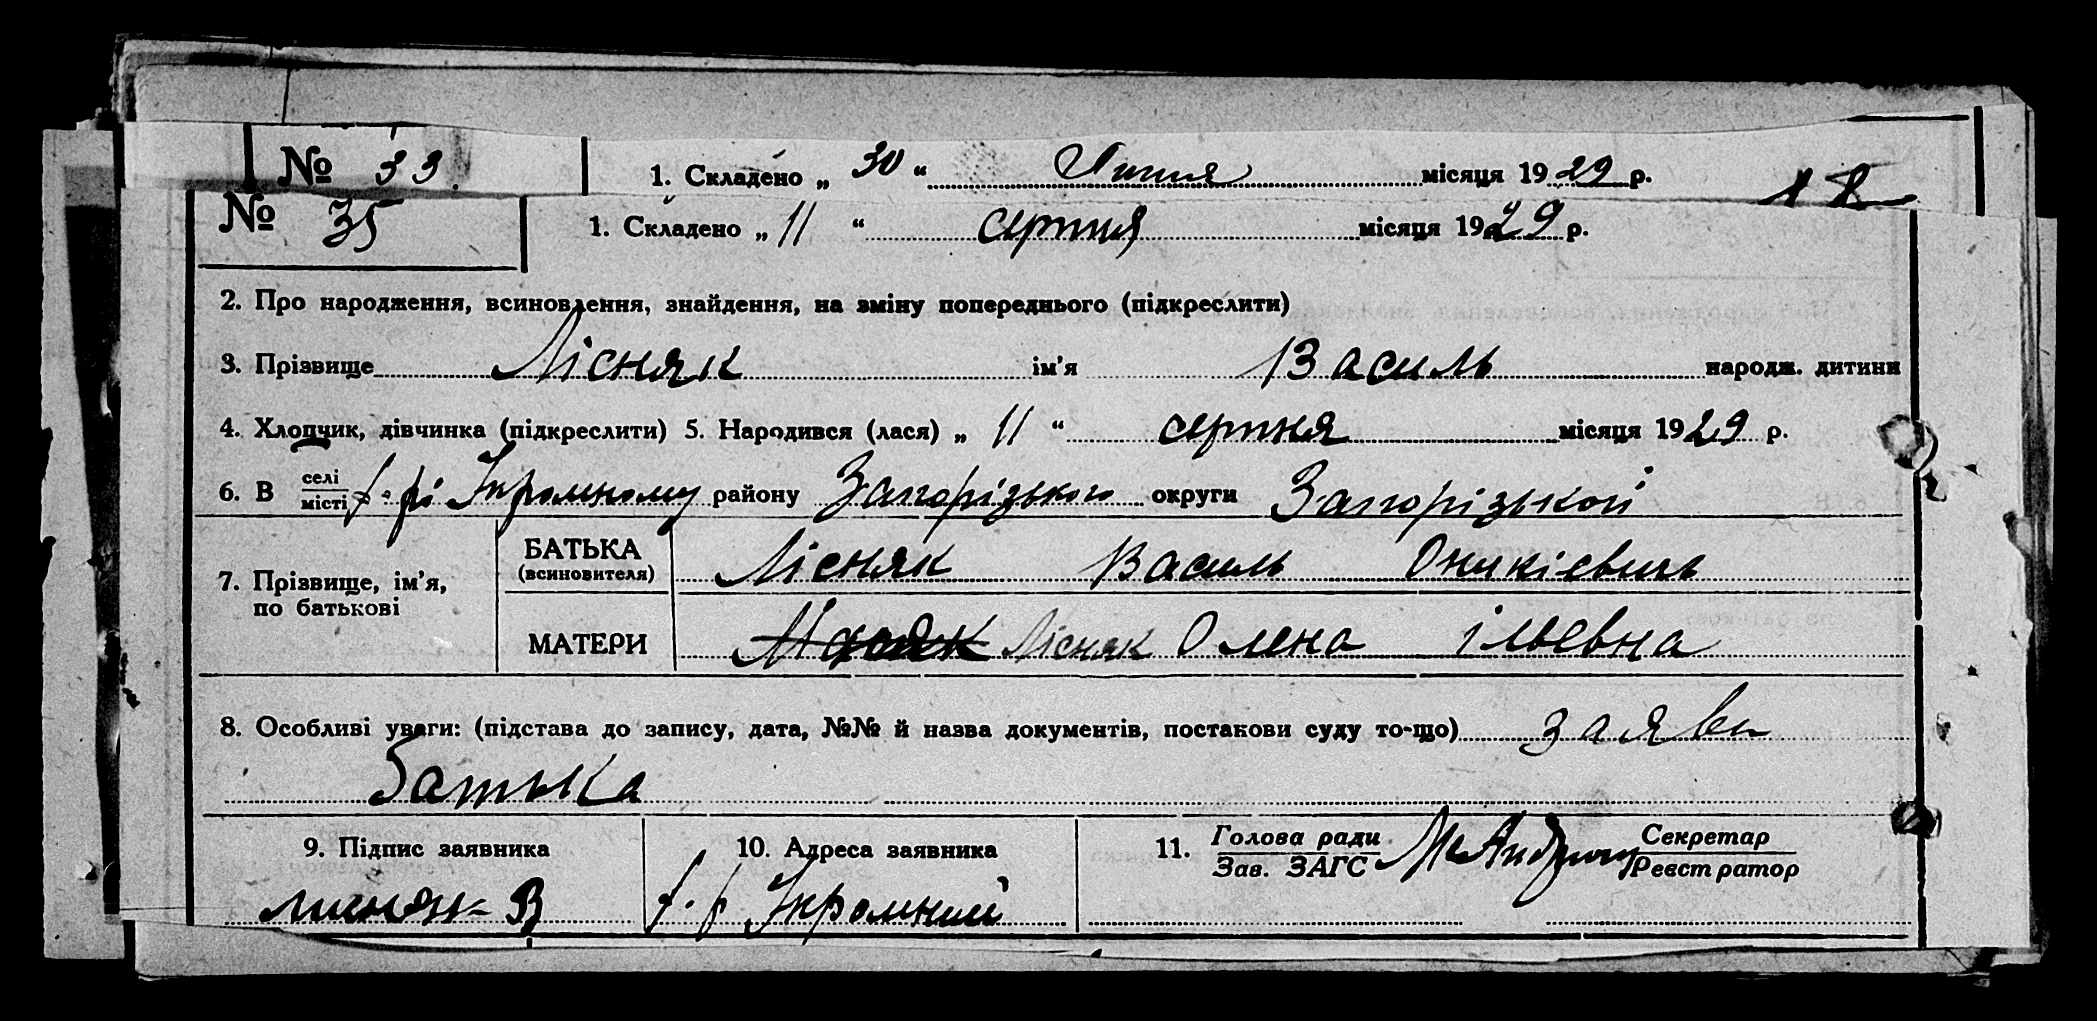 № 33. 1. Складено „ 30 “ Липня місяця 1929 р.
№ 35 1. Складено „ 11 “ серпня місяця 1929 р.
2. Про народження, всиновлення, знайдення, на зміну попереднього (підкреслити)
3. Прізвище Лісняк ім'я Василь народж. дитини
4. Хлопчик, дівчинка (підкреслити) 5. Народився (лася) „ 11 “ серпня місяця 1929 р.
6. В селі
місті х-рі Укромному району Запорізького округи Запорізької
7. Прізвище, ім'я, по батькові
БАТЬКА (всиновителя) Лісняк Василь Оникієвичь
МАТЕРИ Лісняк Олена ільевна
8. Особливі уваги: (підстава до запису, дата, №№ й назва документів, постакови суду то-що) заяви
батька
9. Підпис заявника 10. Адреса заявника 11. Голова ради Секретар
Зав. ЗАГС Реєстратор
В х-р Укромний